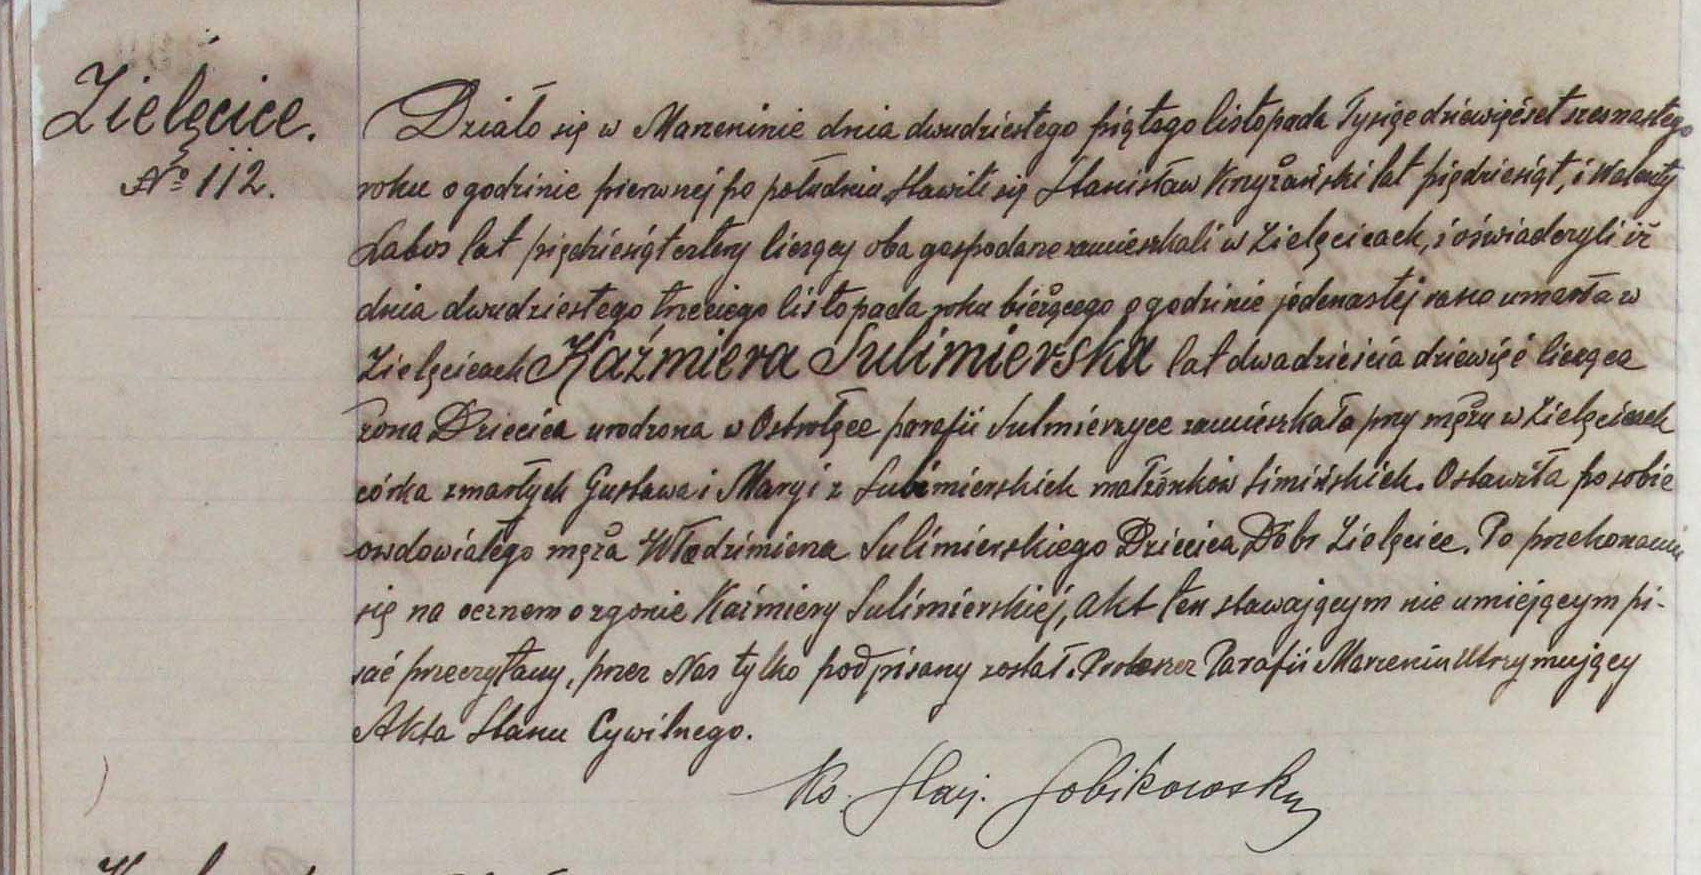 Zielęcice.
№ 112.
Działo się w Marzeninie dnia dwudziestego piątego listopada Tysiąc dziewięćset szesnastego
roku o godzinie pierwszej po południu, stawili się Stanisław Krzyżański lat pięćdziesiąt, i Walenty
Łabos lat pięćdziesiąt cztery liczący oba gospodarze zamieszkali w Zielęcicach, i oświadczyli iż
dnia dwudziestego trzeciego listopada roku bieżącego o godzinie jedenastej rano umarła w
Zielęcicach Kaźmiera Sulimierska lat dwadzieścia dziewięć licząca
żona Dziedzica urodzona w Ostrołęce parafii Sulmierzyce zamieszkała przy mężu w Zielęcicach
córka zmarłych Gustawa i Maryi z Sulimierskich małżonków Simińskich. Ostawiła po sobie
owdowiałego męża Włodzimierza Sulimierskiego Dziedzica Dóbr Zielęcice. Po przekonaniu
się na ocznem o zgonie Kaźmiery Sulimierskiej, akt ten stawającym nie umiejącym pi-
sać przeczytany, przez Nas tylko podpisany został. Proboszcz Parafii Marzenin Utrzymujący
Akta Stanu Cywilnego.
Ks. Sobikowsky